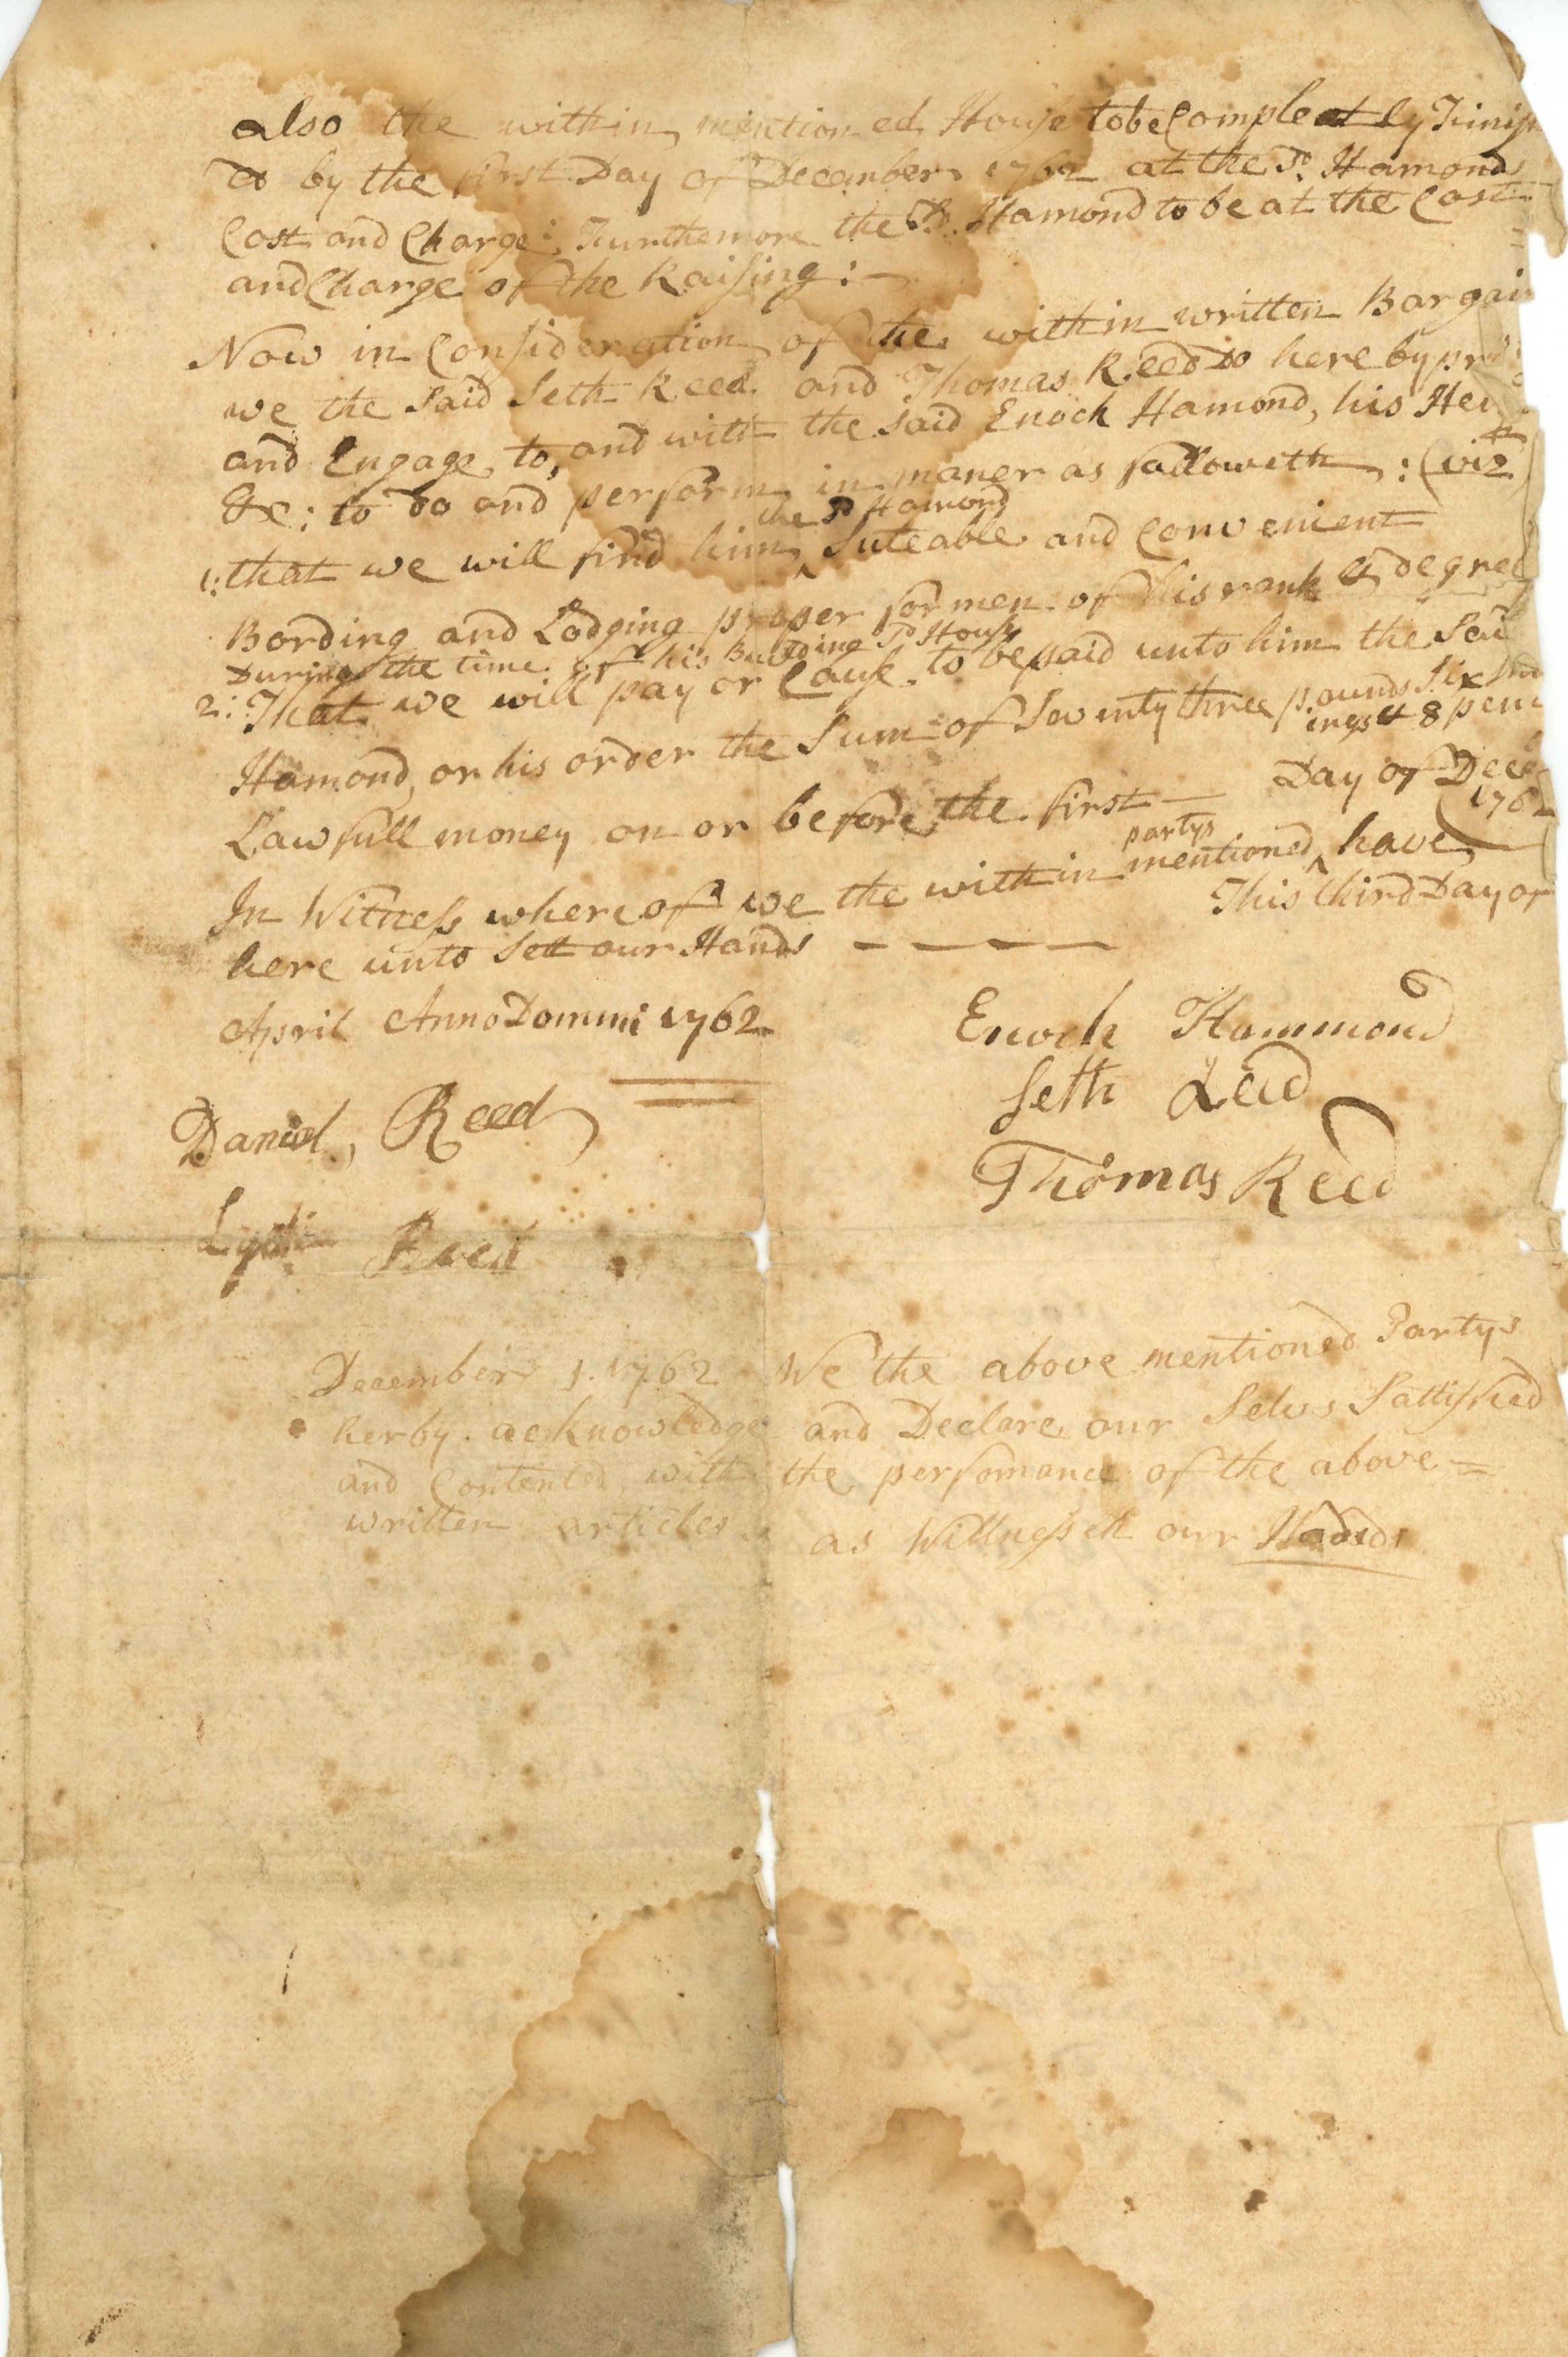 also the within mentioned House to be Compleatly Finish
ed by the first Day of December 1762 at the Sd. Hamonds
Cost and Charge: Furthemore the Sd. Hamond to be at the Cost
and Charge of the Raising:—
Now in Consideration of the within written Bargain
we the Said Seth Reed and Thomas Reed do here by
and Engage to, and with the said Enoch Hamond, his
&c: to do and perform in maner as falloweth: (viz)
the Sd Hamond
1: that we will find him ^ Suteable and Convenient
Bording and Lodging proper for men of his rank & degree
During the time of his Building Sd House
2: That we will pay or Cause to be paid unto him the
Hamond, or his order the Sum of Seventy three pounds Six
ings & 8 pen
Lawfull money on or before the first — Day of
1762
partys
In Witness whereof we the within mentioned ^ have
here unto Sett our Hands — — — — This third Day of
April Anno Dommi 1762
Enoch Hammond
Seth Reed
Daniel Reed
Thomas Reed
Lydia Reed
December 1. 1762 We the above mentioned Partys
herby acknowledge and Declare our Selvs Sattisfied
and Contented with the perfomance of the above =
written articles as Wittnesseth our Hands